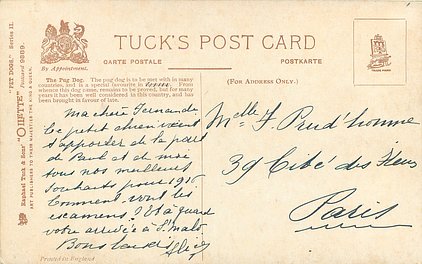 TUCK'S POST CARD
By Appointment.
CARTE POSTALE
POSTKARTE
The Pug Dog. The pug dog is to be met with in many
countries, and is a special favourite in
whence this dog came, remains to be proved, but for many
years it has been well considered in this country, and has
been brought in favour of late.
(FOR ADDRESS ONLY.)
TRADE MARK
"PET DOGS." Series II.
"OILETTE" Postcard 9589.
Raphael Tuck & Sons'
ART PUBLISHERS TO THEIR MAJESTIES THE KING & QUEEN.
Ma chère Fernande
Le petit chien vient
t'apporter de la part
de Paul et de moi
tous nos meilleurs
souhaits pour 1916
Comment vont les
examens ? Et à quand
votre arrivée à St Malo
Bons baisers
Printed in England
Mdlle F. Prud'homme
39 Cité des Fleurs
Paris